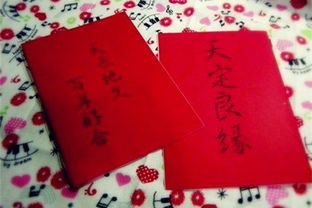 天定良緣
天長地久
百年好合